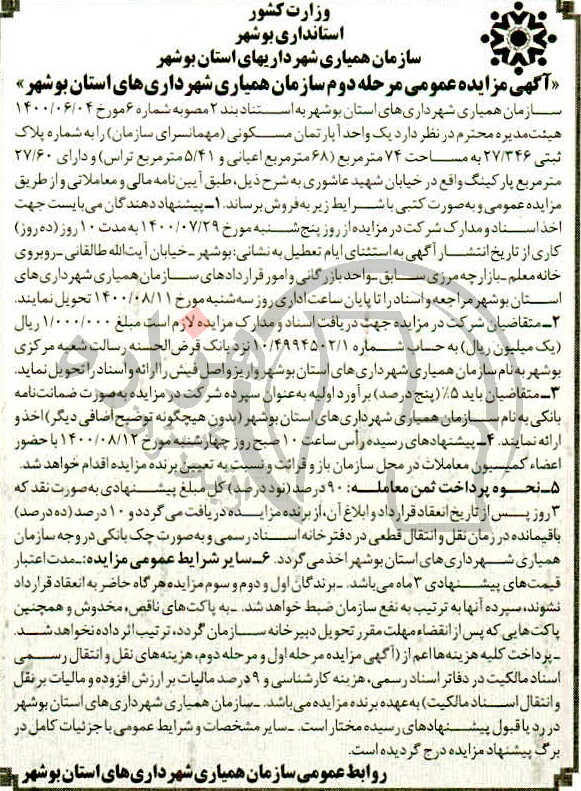 وزارت کشور
استانداری بوشهر
سازمان همیاری شهرداریهای استان بوشهر
«آگهی مزایده عمومی مرحله دوم سازمان همیاری شهرداری‌های استان بوشهر»
سازمان همیاری شهرداری‌های استان بوشهر به استناد بند ۲ مصوبه شماره ۶ مورخ ۱۴۰۰/۰۶/۰۴
هیئت‌مدیره محترم در نظر دارد یک واحد آپارتمان مسکونی (مهمانسرای سازمان) را به شماره پلاک
ثبتی ۲۷/۳۴۶ به مساحت ۷۴ مترمربع (۶۸ مترمربع اعیانی و ۵/۴۱ مترمربع تراس) و دارای ۲۷/۶۰
مترمربع پارکینگ واقع در خیابان شهید عاشوری به شرح ذیل، طبق آیین‌نامه مالی و معاملاتی و از طریق
مزایده عمومی و به‌صورت کتبی با شرایط زیر به فروش برساند. ۱ـ پیشنهاد دهندگان می‌بایست جهت
اخذ اسناد و مدارک شرکت در مزایده از روز پنج‌شنبه مورخ ۱۴۰۰/۰۷/۲۹ به مدت ۱۰ روز (ده روز)
کاری از تاریخ انتشار آگهی به استثنای ایام تعطیل به نشانی: بوشهر ـ خیابان آیت‌الله طالقانی ـ روبروی
خانه معلم ـ بازارچه مرزی سابق ـ واحد بازرگانی و امور قراردادهای سازمان همیاری شهرداری‌های
استان بوشهر مراجعه و اسناد را تا پایان ساعت اداری روز سه‌شنبه مورخ ۱۴۰۰/۰۸/۱۱ تحویل نمایند.
۲ـ متقاضیان شرکت در مزایده جهت دریافت اسناد و مدارک مزایده لازم است مبلغ ۱/۰۰۰/۰۰۰ ریال
(یک میلیون ریال) به حساب شماره ۱۰/۴۹۹۴۵۰۲/۱ نزد بانک قرض‌الحسنه رسالت شعبه مرکزی
بوشهر به نام سازمان همیاری شهرداری های استان بوشهر واریز و اصل فیش را ارائه و اسناد را تحویل نماید.
۳ـ متقاضیان باید ۵٪ (پنج درصد) برآورد اولیه به‌عنوان سپرده شرکت در مزایده به‌صورت ضمانت‌نامه
بانکی به نام سازمان همیاری شهرداری‌های استان بوشهر (بدون هیچگونه توضیح اضافی دیگر) اخذ و
ارائه نمایند. ۴ـ پیشنهادهای رسیده رأس ساعت ۱۰ صبح روز چهارشنبه مورخ ۱۴۰۰/۰۸/۱۲ با حضور
اعضاء کمیسیون معاملات در محل سازمان باز و قرائت و نسبت به تعیین برنده مزایده اقدام خواهد شد.
۵ـ نحوه پرداخت ثمن معامله: ۹۰ درصد (نود درصد) کل مبلغ پیشنهادی به‌صورت نقد که
۳ روز پس از تاریخ انعقاد قرارداد و ابلاغ آن، از برنده مزایده دریافت می‌گردد و ۱۰ درصد (ده درصد)
باقیمانده در زمان نقل و انتقال قطعی در دفترخانه اسناد رسمی و به‌صورت چک بانکی در وجه سازمان
همیاری شهرداری های استان بوشهر اخذ می‌گردد. ۶ـ سایر شرایط عمومی مزایده: ـ مدت اعتبار
قیمت‌های پیشنهادی ۳ ماه می‌باشد. ـ برندگان اول و دوم و سوم مزایده هر گاه حاضر به انعقاد قرارداد
نشوند، سپرده آنها به ترتیب به نفع سازمان ضبط خواهد شد. ـ به پاکت‌های ناقص، مخدوش و همچنین
پاکت‌هایی که پس از انقضاء مهلت مقرر تحویل دبیرخانه سازمان گردد، ترتیب اثر داده نخواهد شد.
ـ پرداخت کلیه هزینه‌ها اعم از (آگهی مزایده مرحله اول و مرحله دوم، هزینه‌های نقل و انتقال رسمی
اسناد مالکیت در دفاتر اسناد رسمی، هزینه کارشناسی و ۹ درصد مالیات بر ارزش افزوده و مالیات بر نقل
و انتقال اسناد مالکیت) به‌عهده برنده مزایده می‌باشد. ـ سازمان همیاری شهرداری‌های استان بوشهر
در رد یا قبول پیشنهادهای رسیده مختار است. ـ سایر مشخصات و شرایط عمومی با جزئیات کامل در
برگ پیشنهاد مزایده درج گردیده است.
روابط عمومی سازمان همیاری شهرداری های استان بوشهر